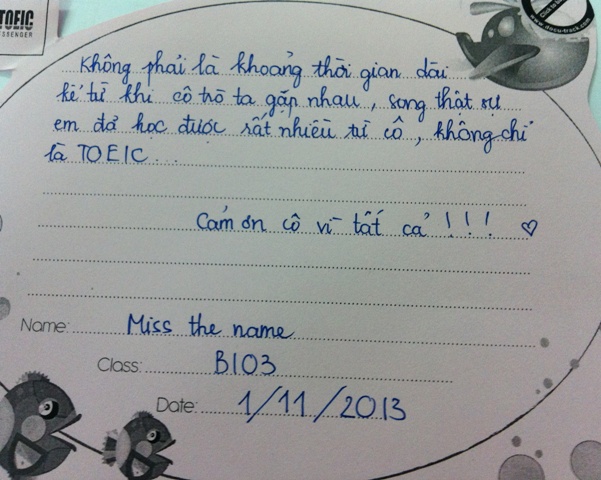 TOEIC
Không phải là khoảng thời gian dài
kể từ khi cô trò ta gặp nhau, song thật sự
em đã học được rất nhiều từ cô, không chỉ
là TOEIC...
Cảm ơn cô vì tất cả!!! ♡
Name: Miss the name
Class: B103
Date: 1/11/2013
www.docu-track.com